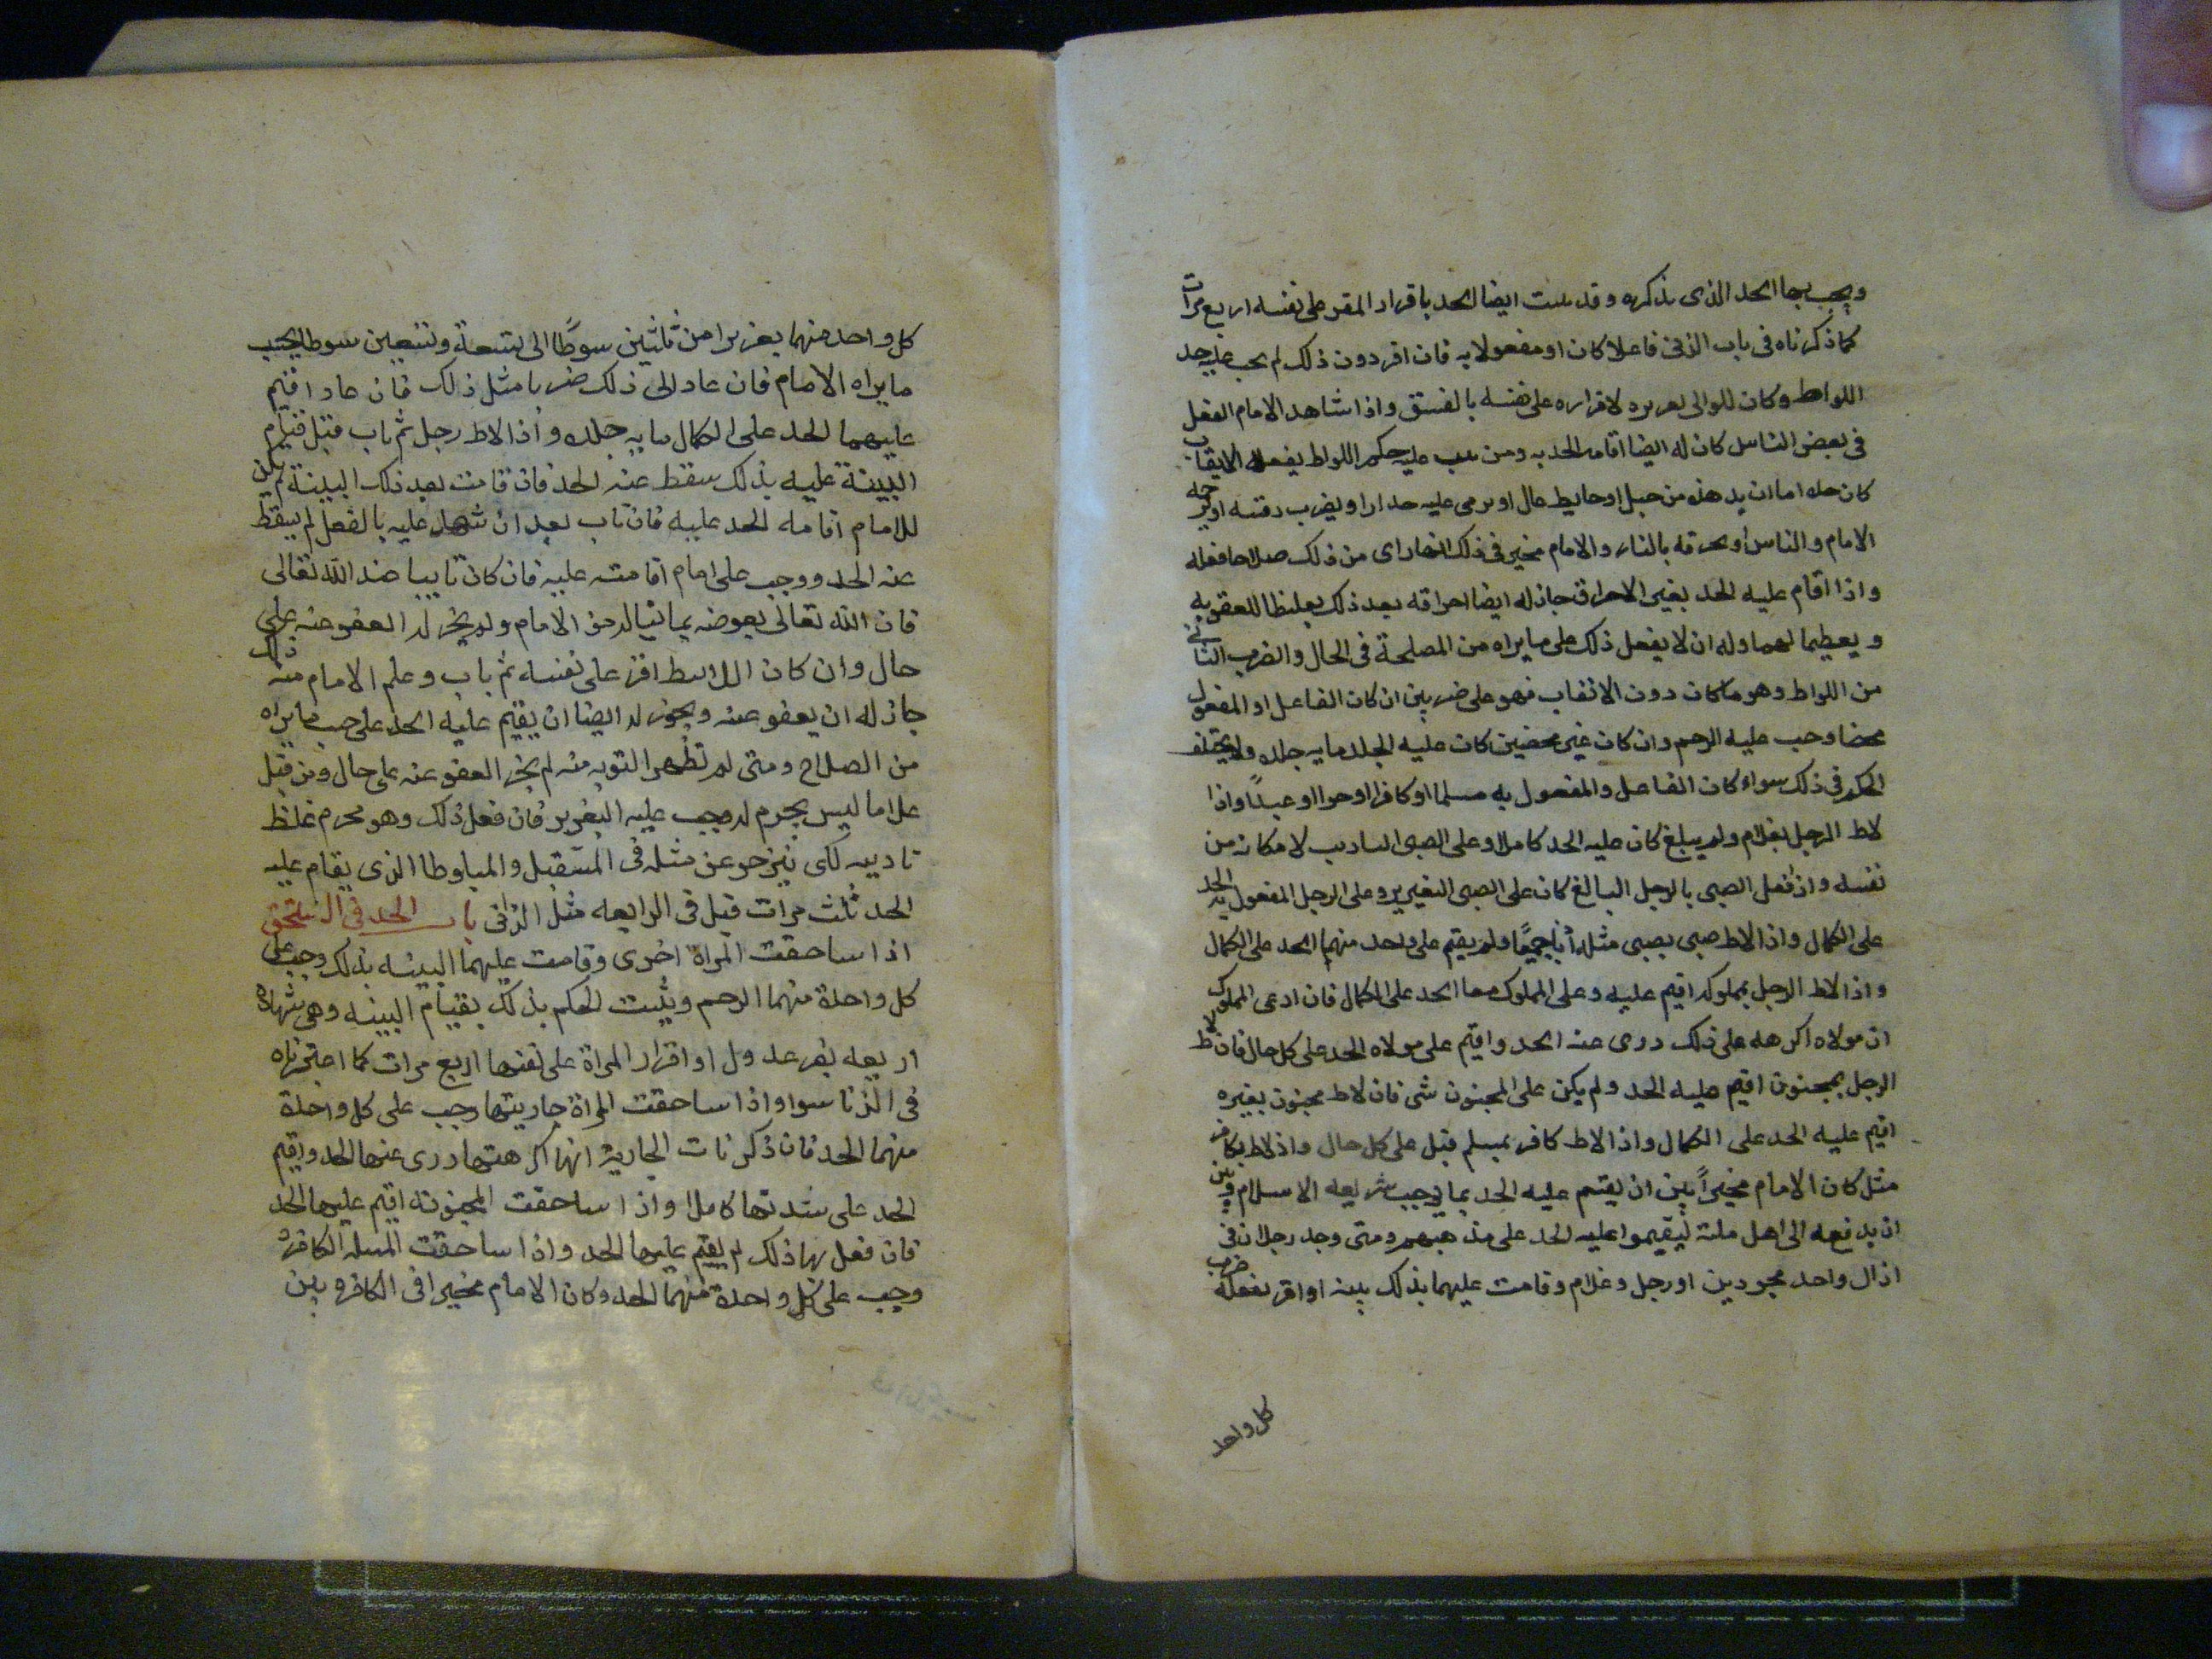 ويجب بها الحد الذى نذكره وقد يثبت ايضا الحد باقرار المقر على نفسه اربع مرات
كما ذكرناه فى باب الزنى فاعلا كان او مفعولا به فان اقر دون ذلك لم يجب عليه حد
اللواط وكان للوالى تعزيره لاقراره على نفسه بالفسق واذا شاهد الامام الفعل
فى بعض الناس كان له ايضا اقامه الحد به ومن ثبت عليه حكم اللواط بفعله الايقاب
كان حده اما ان يدهده من جبل او حايط عال او يرمى عليه جدارا او يضرب رقبته او يرجمه
الامام والناس او يحرقه بالنار والامام مخير فى ذلك ايها راى من ذلك صلاحا فعله
واذا اقام عليه الحد بغير الاحراق جاز له ايضا احراقه بعد ذلك تغليظا للعقوبه
وتعظيما لها وله ان لا يفعل ذلك على ما يراه من المصلحة فى الحال والضرب الثانى
من اللواط وهو ما كان دون الايقاب فهو على ضربين ان كان الفاعل او المفعول
محصنا وجب عليه الرجم وان كان غير محصنين كان عليه الجلد مايه جلده ولا يختلف
الحكم فى ذلك سواء كان الفاعل والمفعول به مسلما او كافرا او حرا او عبدًا واذا
لاط الرجل بغلام ولم يبلغ كان عليه الحد كاملا وعلى الصبى التاديب لامكانه من
نفسه واذا فعل الصبى بالرجل البالغ كان على الصبى التعزير وعلى الرجل المفعول به الحد
على الكمال واذا لاط صبى بصبى مثله أدبا جميعًا ولم يقم على واحد منهما الحد على الكمال
واذا لاط الرجل بمملوكه اقيم عليه وعلى المملوك معا الحد على الكمال فان ادعى المملوك
ان مولاه اكرهه على ذلك درى عنه الحد واقيم على مولاه الحد على كل حال فان لاط
الرجل بمجنون اقيم عليه الحد ولم يكن على المجنون شى فان لاط مجنون بغيره
اقيم عليه الحد على الكمال واذا لاط كافر بمسلم قتل على كل حال واذ لاط بكافر
مثل كان الامام مخيراً بين ان يقيم عليه الحد بما يوجب شريعه الاسلام وبين
ان يدفعه الى اهل ملته ليقيموا عليه الحد على مذهبهم ومتى وجد رجلان فى
ازال واحد مجردين او رجل وغلام وقامت عليهما بذلك بينه او اقر بفعله ضرب
كل واحد
كل واحد منهما تعزيرا من ثلثين سوطًا الى تسعة وتسعين سوطا بحسب
ما يراه الامام فان عاد الى ذلك ضربا مثل ذلك فان عاد اقيم
عليهما الحد على الكمال مايه جلده واذا لاط رجل ثم تاب قبل قيام
البينة عليه بذلك سقط عنه الحد فان قامت بعد ذلك البينة لم يكن
للامام اقامه الحد عليه فان تاب بعد ان شهد عليه بالفعل لم يسقط
عنه الحد ووجب على امام اقامته عليه فان كان تايبا عند الله تعالى
فان الله تعالى يعوضه بما يناله من الامام ولم يجز له العفو عنه على
حال وان كان اللايط اقر على نفسه ثم تاب وعلم الامام منه ذلك
جاز له ان يعفو عنه ويجوز له ايضا ان يقيم عليه الحد على حسب ما يراه
من الصلاح ومتى لم تظهر التوبه منه لم يجز العفو عنه على حال ومن قبل
غلاما ليس بمحرم له وجب عليه التعزير فان فعل ذلك وهو محرم غلظ
تاديبه لكى ينزجر عن مثله فى المستقبل والمتلوط الذى يقام عليه
الحد ثلث مرات قتل فى الرابعه مثل الزانى باب الحد فى السحق
اذا ساحقت المراة اخرى وقامت عليهما البينه بذلك وجب على
كل واحدة منهما الرجم ويثبت الحكم بذلك بقيام البينه وهى شهادة
اربعه نفر عدول او اقرار المراة على نفسها اربع مرات كما اعتبرناه
فى الزنا سوا واذا ساحقت المراة جاريتها وجب على كل واحدة
منهما الحد فان ذكرت الجارية انها اكرهتها درى عنها الحد واقيم
الحد على سيدتها كاملا واذا ساحقت المجنونة اقيم عليها الحد
فان فعل بها ذلك لم يقم عليها الحد واذا ساحقت المسلمه الكافره
وجب على كل واحدة منهما الحد وكان الامام مخيرا فى الكافره بين